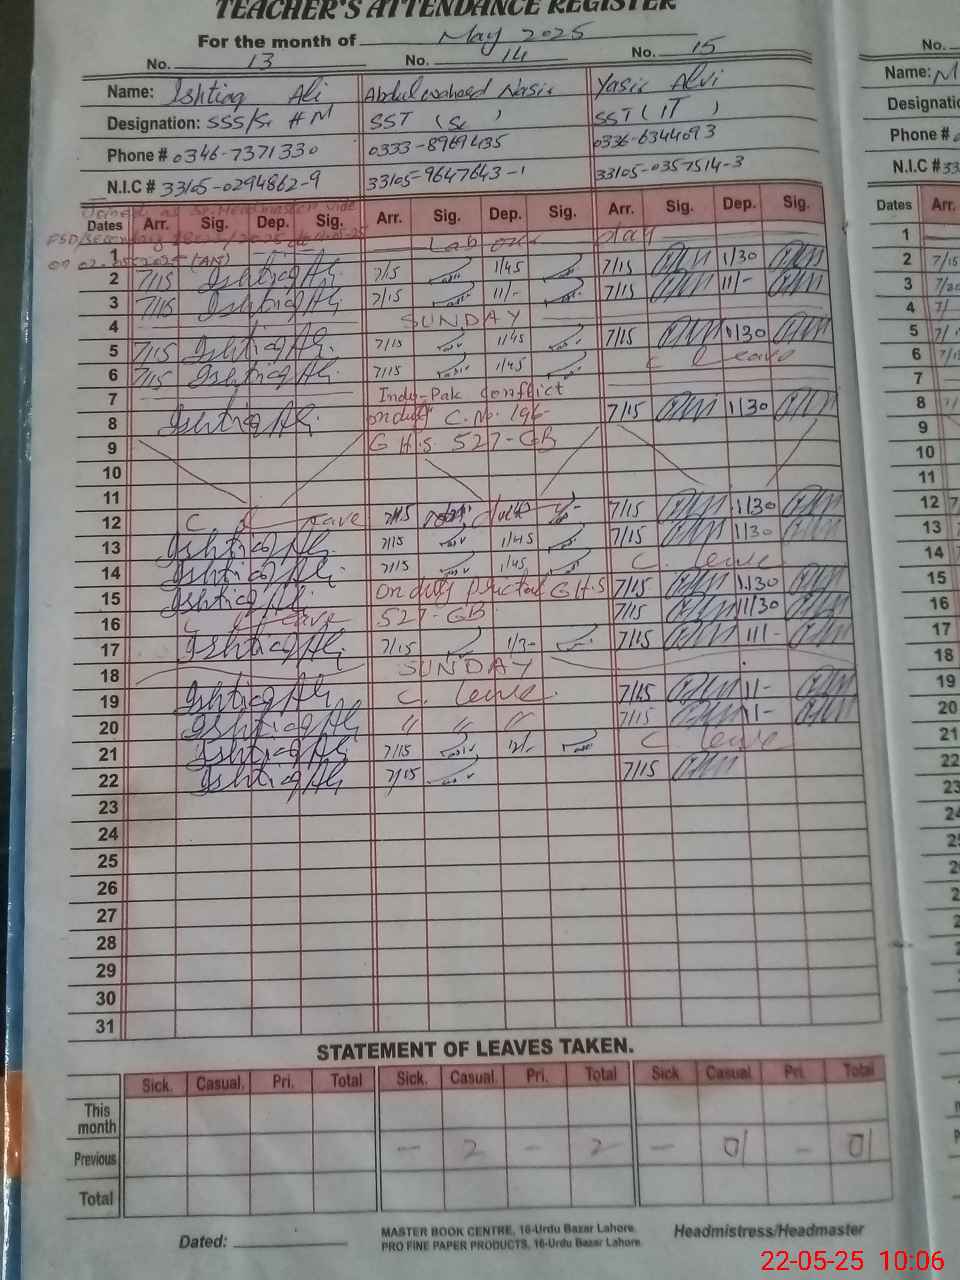 TEACHER'S ATTENDANCE REGISTER
For the month of May 2025
No. 13 No. 14 No. 15
Name: Ishtiaq Ali Abdul Waheed Nasir Yasir Alvi
Designation: SSS/Sr HM SST (Sc) SST (IT)
Phone # 0346-7371330 0333-8969435 0336-6344093
N.I.C # 33105-0294862-9 33105-9647643-1 33105-0357514-3
Joined as Sr. Headmaster vide
Dates Arr. Sig. Dep. Sig. Arr. Sig. Dep. Sig. Arr. Sig. Dep. Sig.
1 Labour Day
on 02-05-2025 (AN)
2 7/15 Ishtiaq Ali 7/15 1/45 7/15 1/30
3 7/15 Ishtiaq Ali 7/15 11/- 7/15 11/-
4 SUNDAY
5 7/15 Ishtiaq Ali 7/15 1/45 7/15 1/30
6 7/15 Ishtiaq Ali 7/15 1/45 C leave
7 Indo-Pak conflict
8 Ishtiaq Ali on duty C.No. 196- 7/15 1/30
9 G.H.S 527-GB
10
11
12 C leave 7/15 7/15 1/30
13 Ishtiaq Ali 7/15 1/45 7/15 1/30
14 Ishtiaq Ali 7/15 1/45 C. leave
15 Ishtiaq Ali on duty G.H.S 7/15 1.30
16 C leave 527-GB 7/15 11/30
17 Ishtiaq Ali 7/15 7/15 11/-
18 SUNDAY
19 Ishtiaq Ali C. leave. 7/15 11-
20 Ishtiaq Ali " " " 7/15 11-
21 Ishtiaq Ali 7/15 12/- C leave
22 Ishtiaq Ali 7/15 7/15
23
24
25
26
27
28
29
30
31
STATEMENT OF LEAVES TAKEN.
Sick. Casual. Pri. Total Sick. Casual. Pri. Total Sick. Casual. Pri. Total
This month
Previous - 2 - 2 - 01 - 01
Total
Dated: MASTER BOOK CENTRE, 16-Urdu Bazar Lahore. Headmistress/Headmaster
PRO FINE PAPER PRODUCTS, 16-Urdu Bazar Lahore.
No.
Name: M
Designatio
Phone #
N.I.C # 33
Dates Arr.
1
2 7/15
3
4
5
6
7
8
9
10
11
12
13
14
15
16
17
18
19
20
21
22
23
22-05-25 10:06